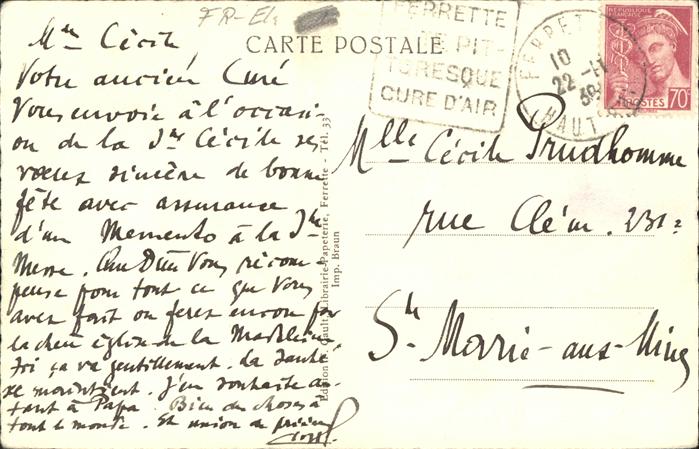 FR-Els
CARTE POSTALE
FERRETTE
PIT-
TORESQUE
CURE D'AIR
FERRETTE
10
22 -11
39
HAUT
RÉPUBLIQUE FRANÇAISE
POSTES 70c
Mlle Cécile
Votre ancien Curé
Vous envoie à l'occasi-
on de la Ste Cécile ses
vœux sincère de bonne
fête avec assurance
d'un Memento à la Ste
Messe. Que Dieu Vous récom-
pense pour tout ce que Vous
avez fait ou ferez encore pour
la chère église de la Madeleine.
Ici ça va gentillement. La santé
se maintient. J'en souhaite au-
tant à Papa. Bien des choses à
tout le monde. En union de prières
Edition Gault, Librairie-Papeterie, Ferrette - Tél. 33
Imp. Braun
Mlle Cécile Prudhomme
rue Clém. 231
Ste Marie-aux-Mines